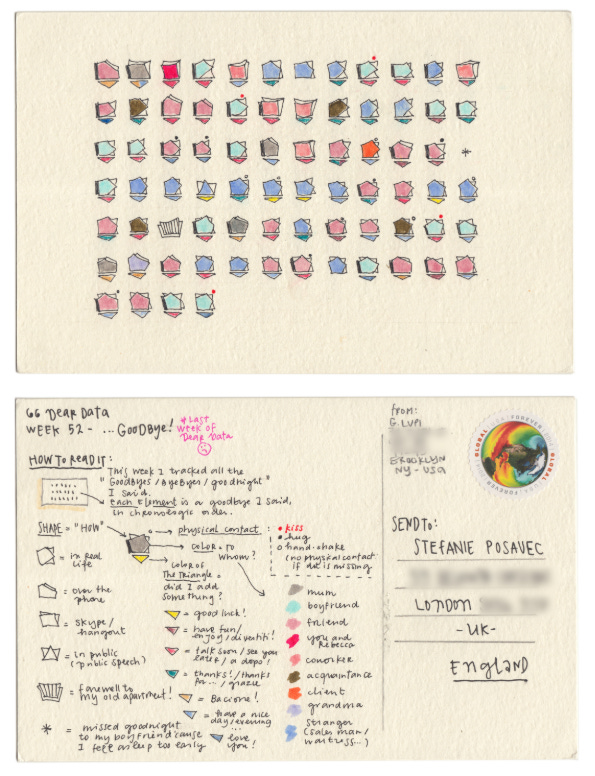 GG DEAR DATA
WEEK 52 - ... GOODBYE!
* LAST
WEEK OF
DEAR DATA
HOW TO READ IT:
This week I tracked all the
"GOODBYES / BYEBYES / GOODNIGHT"
I said.
Each element is a goodbye I said,
in chronologic order.
SHAPE = "HOW"
= in real
life
= over the
phone
= skype/
hangout
= in public
(public speech)
= farewell to
my old apartment!
* = missed goodnight
to my boyfriend 'cause
I feel asleep too early
physical contact:
• kiss
• hug
○ hand-shake
(no physical contact
if dot is missing
COLOR = TO
WHOM?
COLOR OF
THE TRIANGLE =
did I add
something?
= good luck!
= have fun/
enjoy/divertiti!
= talk soon/see you
later/a dopo!
= thanks!/thanks
for.../grazie
= Bacione!
= have a nice
day/evening
...
= love
you!
mum
boyfriend
friend
you and
Rebecca
coworker
acquaintance
client
grandma
stranger
(sales man/
waitress...)
FROM:
G. LUPI
BROOKLYN
NY - USA
GLOBAL
FOREVER
GLOBAL
FOREVER
SEND TO:
STEFANIE POSAVEC
LONDON
- UK -
ENGLAND